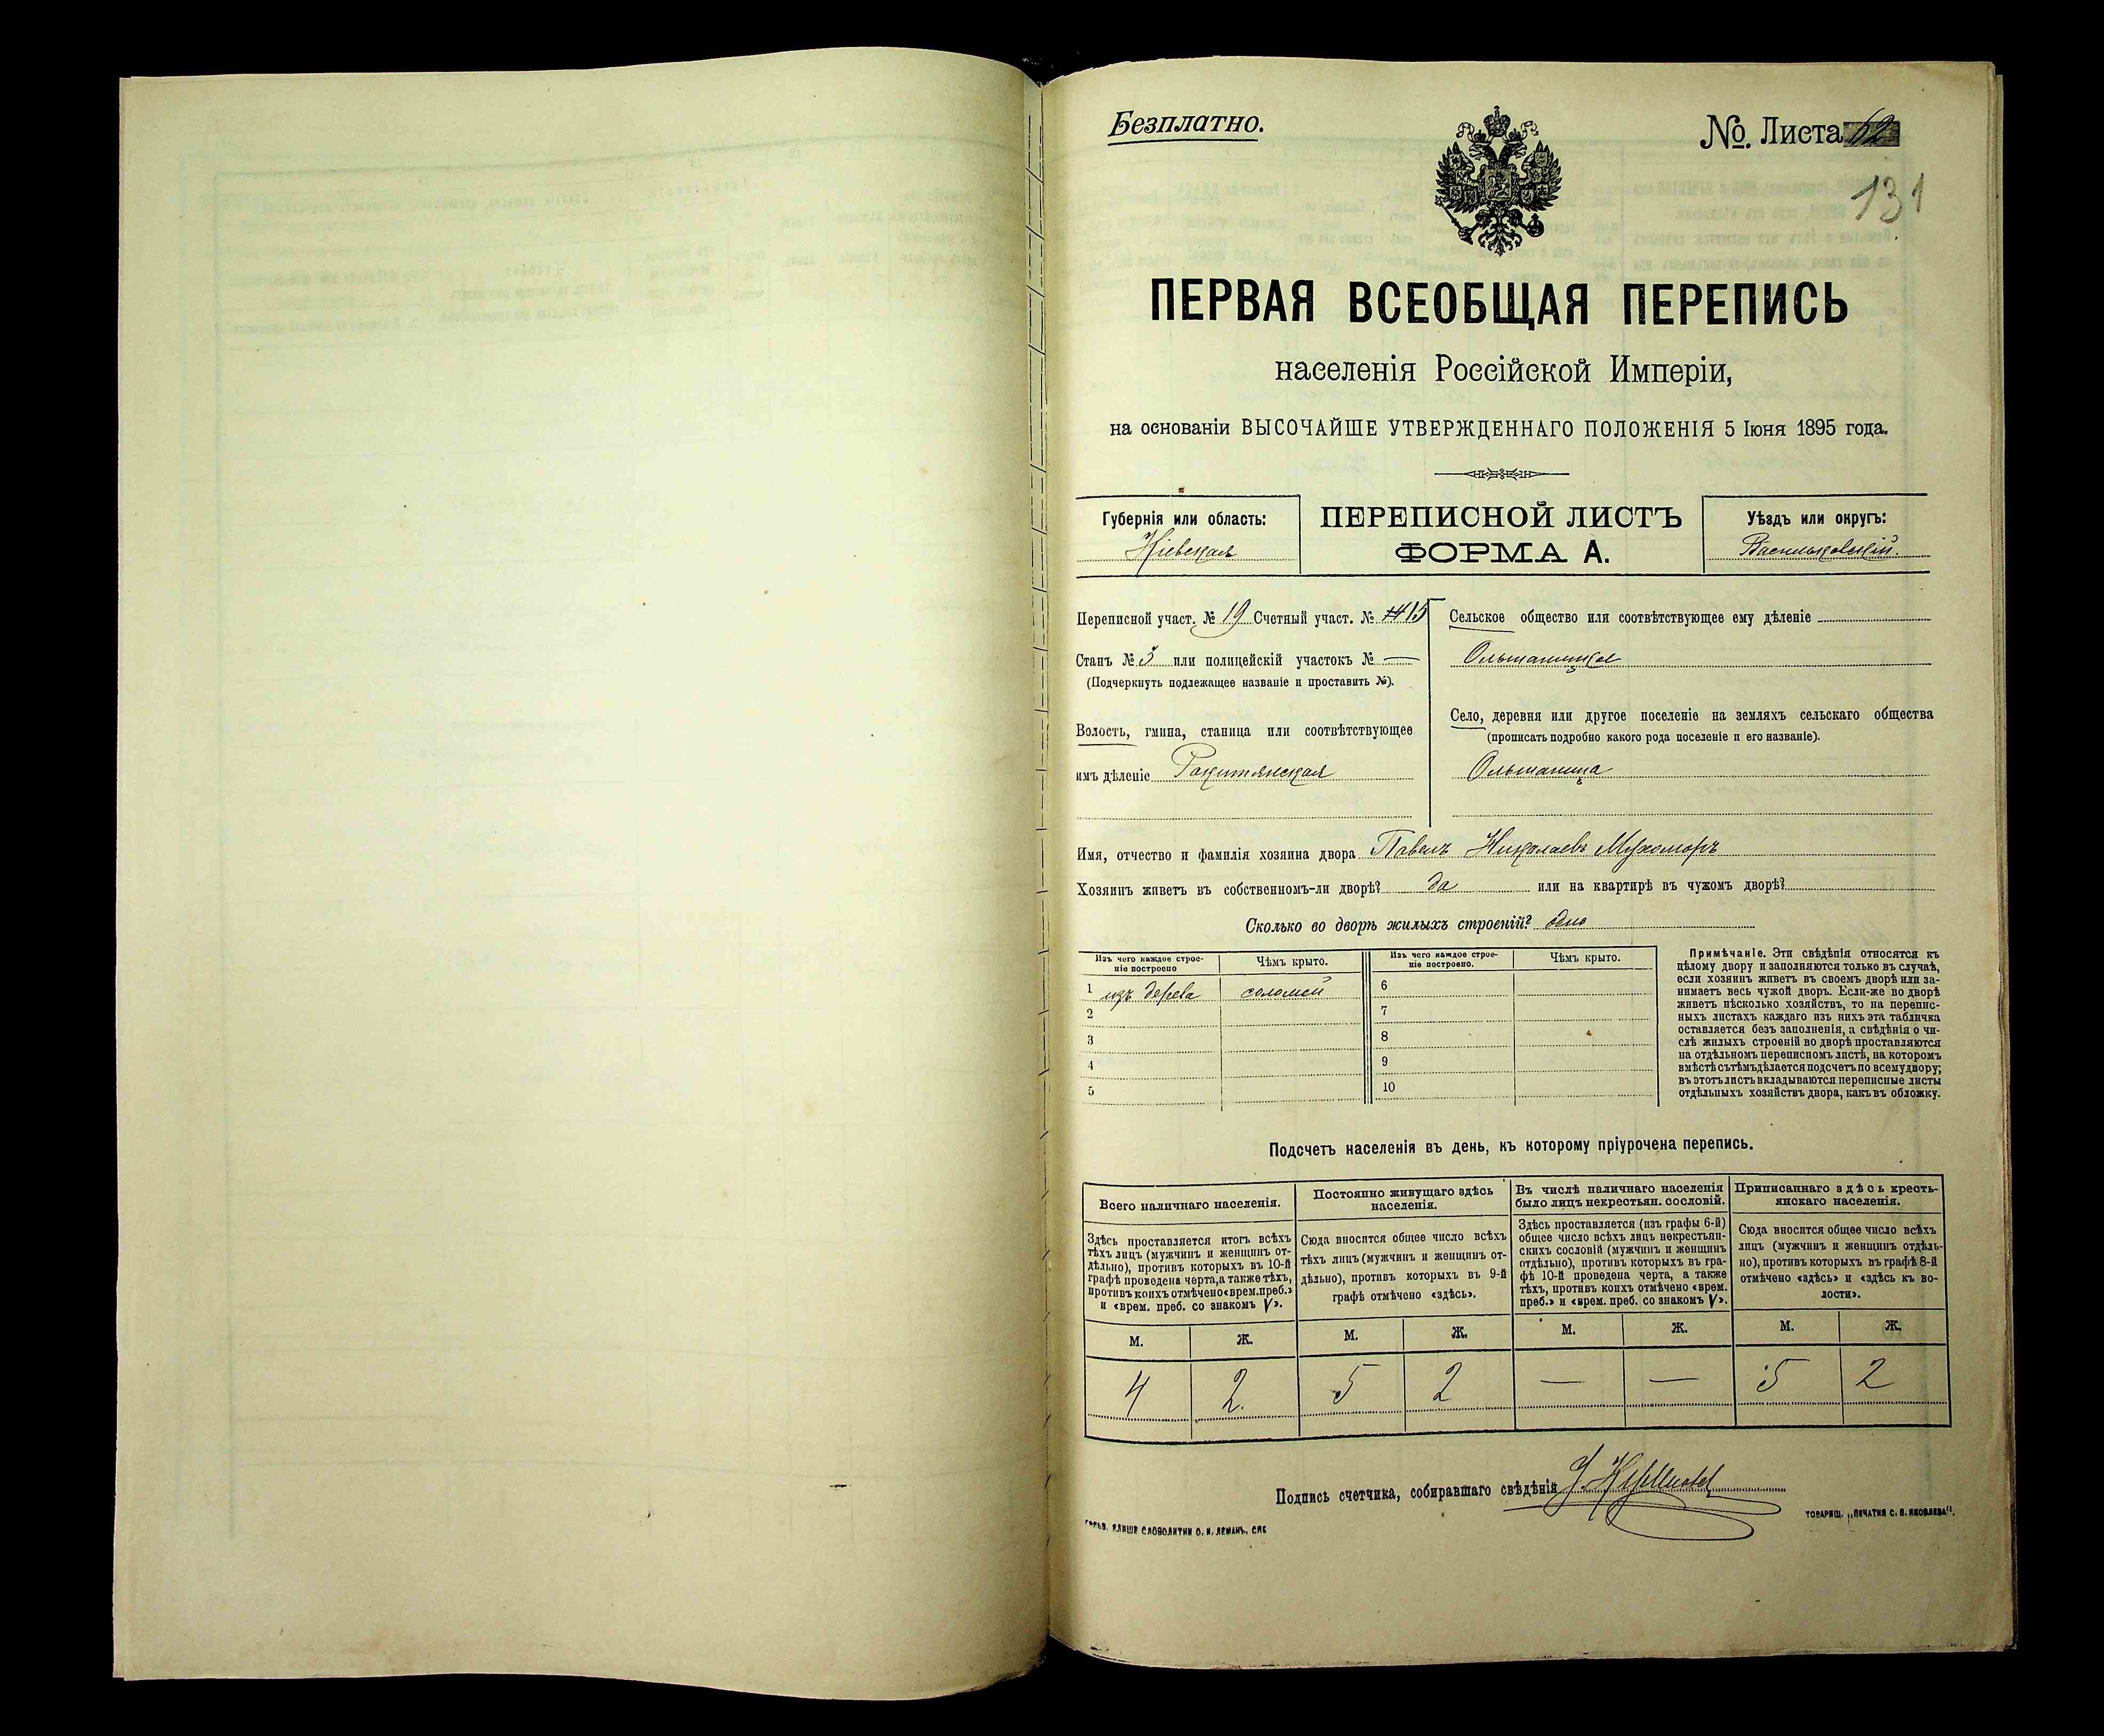 Безплатно.
№. Листа 62
131
ПЕРВАЯ ВСЕОБЩАЯ ПЕРЕПИСЬ
населенія Россійской Имперіи,
на основаніи ВЫСОЧАЙШЕ УТВЕРЖДЕННАГО ПОЛОЖЕНІЯ 5 Іюня 1895 года.
Губернія или область:
Кіевская
ПЕРЕПИСНОЙ ЛИСТЪ
ФОРМА А.
Уѣздъ или округъ:
Васильковскій.
Переписной участ. № 19 Счетный участ. № 14 15
Станъ № 3 или полицейскій участокъ № —
(Подчеркнуть подлежащее названіе и проставить №).
Волость, гмина, станица или соотвѣтствующее
имъ дѣленіе Ракитянская
Сельское общество или соотвѣтствующее ему дѣленіе
Ольшаницкое
Село, деревня или другое поселеніе на земляхъ сельскаго общества
(прописать подробно какого рода поселеніе и его названіе).
Ольшаница
Имя, отчество и фамилія хозяина двора Павелъ Николаевъ Мухоморъ
Хозяинъ живетъ въ собственномъ-ли дворѣ? да или на квартирѣ въ чужомъ дворѣ?
Сколько во дворѣ жилыхъ строеній? одно
Изъ чего каждое строе-
ніе построено
Чѣмъ крыто.
Изъ чего каждое строе-
ніе построено.
Чѣмъ крыто.
1 изъ дерева соломой
2
3
4
5
6
7
8
9
10
Примѣчаніе. Эти свѣдѣнія относятся къ
цѣлому двору и заполняются только въ случаѣ,
если хозяинъ живетъ въ своемъ дворѣ или за-
нимаетъ весь чужой дворъ. Если-же во дворѣ
живетъ нѣсколько хозяйствъ, то на перепис-
ныхъ листахъ каждаго изъ нихъ эта табличка
оставляется безъ заполненія, а свѣдѣнія о чи-
слѣ жилыхъ строеній во дворѣ проставляются
на отдѣльномъ переписномъ листѣ, на которомъ
вмѣстѣ съ тѣмъ дѣлается подсчетъ по всему двору;
въ этотъ листъ вкладываются переписные листы
отдѣльныхъ хозяйствъ двора, какъ въ обложку.
Подсчетъ населенія въ день, къ которому пріурочена перепись.
Всего наличнаго населенія.
Здѣсь проставляется итогъ всѣхъ
тѣхъ лицъ (мужчинъ и женщинъ от-
дѣльно), противъ которыхъ въ 10-й
графѣ проведена черта, а также тѣхъ,
противъ коихъ отмѣчено «врем. преб.»
и «врем. преб. со знакомъ V».
Постоянно живущаго здѣсь
населенія.
Сюда вносится общее число всѣхъ
тѣхъ лицъ (мужчинъ и женщинъ от-
дѣльно), противъ которыхъ въ 9-й
графѣ отмѣчено «здѣсь».
Въ числѣ наличнаго населенія
было лицъ некрестьян. сословій.
Здѣсь проставляется (изъ графы 6-й)
общее число всѣхъ лицъ некрестьян-
скихъ сословій (мужчинъ и женщинъ
отдѣльно), противъ которыхъ въ гра-
фѣ 10-й проведена черта, а также
тѣхъ, противъ коихъ отмѣчено «врем.
преб.» и «врем. преб. со знакомъ V».
Приписаннаго здѣсь кресть-
янскаго населенія.
Сюда вносится общее число всѣхъ
лицъ (мужчинъ и женщинъ отдѣль-
но), противъ которыхъ въ графѣ 8-й
отмѣчено «здѣсь» и «здѣсь къ во-
лости».
М. Ж. М. Ж. М. Ж. М. Ж.
4 2. 5 2 — — 5 2
Подпись счетчика, собиравшаго свѣдѣнія
СЛОВОЛИТНИ О. И. ЛЕМАНЪ, СПБ
ТОВАРИЩ. „ПЕЧАТНЯ С. П. ЯКОВЛЕВА".